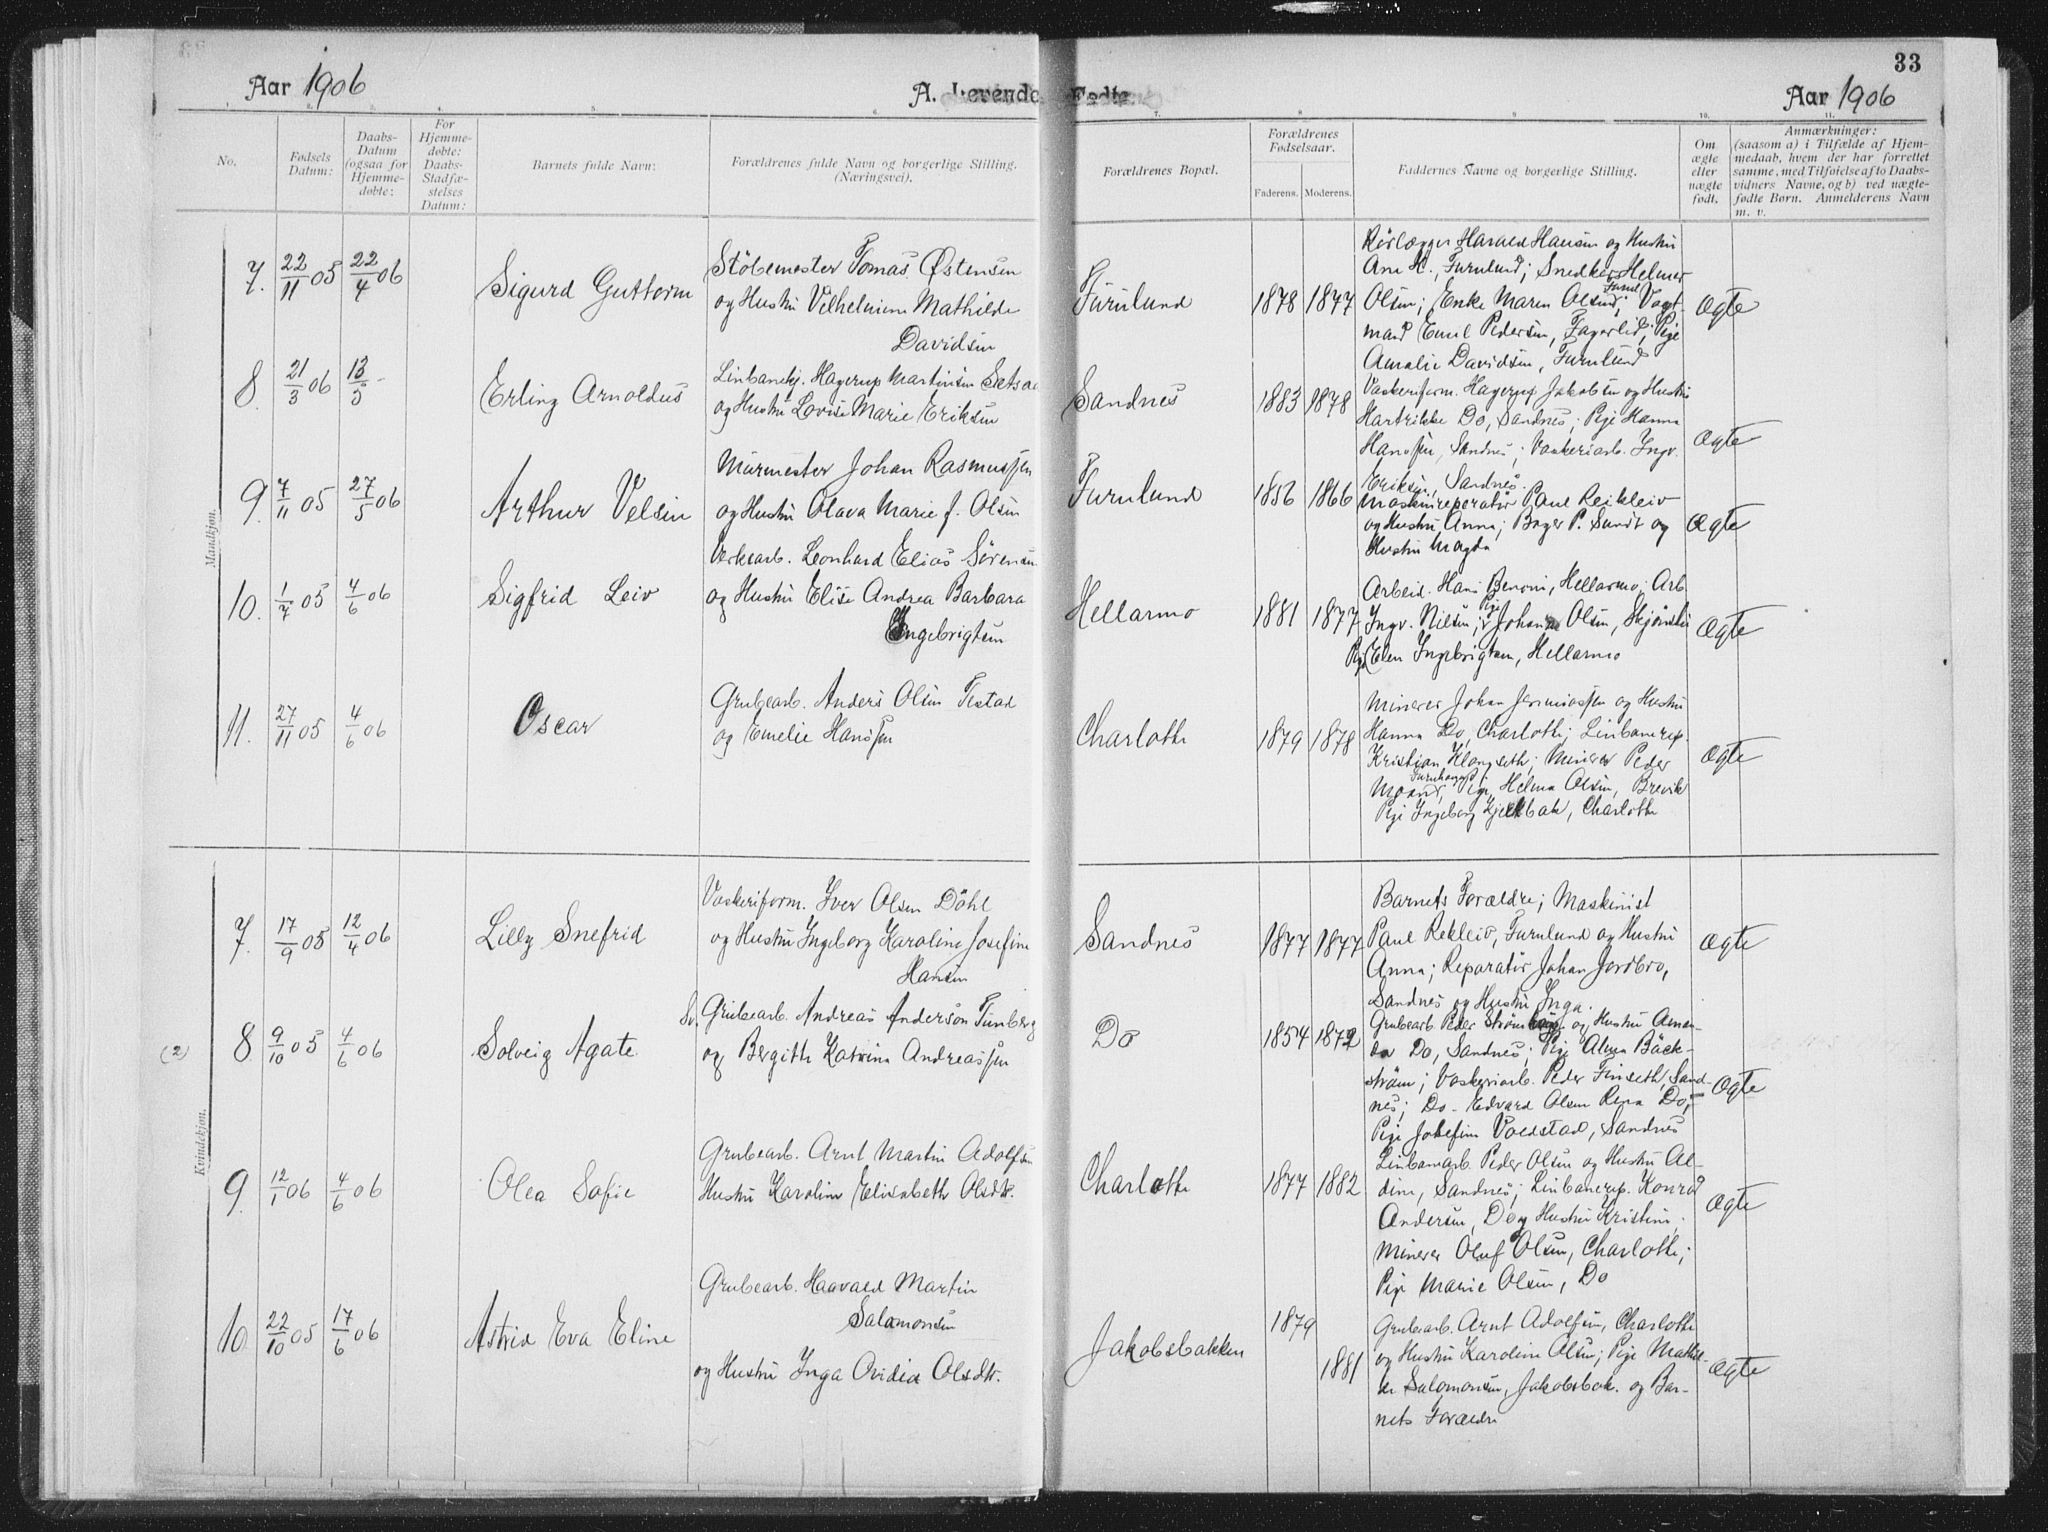 33
Aar 1906
A. Levende Fødte.
Aar 1906
1. 2. 3. 4. 5. 6. 7. 8. 9. 10. 11.
No.
Fødsels Datum:
Daabs-Datum (ogsaa for Hjemme-døbte:
For Hjemme-døbte: Daabs-Stadfæ-stelses Datum:
Barnets fulde Navn:
Forældrenes fulde Navn og borgerlige Stilling. (Næringsvei).
Forældrenes Bopæl.
Forældrenes Fødselsaar.
Faderens. Moderens.
Faddernes Navne og borgerlige Stilling.
Om ægte eller nægte født.
Anmærkninger:
(saasom a) i Tilfælde af Hjem-
medaab, hvem der har forrettet
samme, med Tilføielse af to Daabs-
vidners Navne, og b) ved uægte-
fødte Børn. Anmelderens Navn
m. v.
Mandkjøn.
7. 22/11 05 22/4 06
Sigurd Guttorm
Støbemester Tomas Østensen
og Hustru Vilhelmine Mathilde
Davidsen
Furulund
1878 1877
Rørlægger Harald Hansen og Hustru
Ane K., Furulund; Snedker Helmer
Olsen; Enke Maren Olsen, Furul; Vagt-
mand Emil Pedersen, Fagerlid; Pige
Amalie Davidsen, Furulund
ægte
8. 21/3 06 13/5 -
Erling Arnoldus
Linbanekj. Hagerup Martinsen
og Hustru Lovise Marie Eriksen
Sandnes
1883 1878
Vaskeriform. Hagerup Jakobsen og Hustru
Hartrikke Do, Sandnes; Pige Hanna
Hanssen, Sandnes; Vaskeriarb. Ingv.
Eriksen, Sandnes.
ægte
9. 7/11 05 27/5 06
Arthur Velsin
Murmester Johan Rasmussen
og Hustru Olava Marie f. Olsen
Furulund
1856 1866
Maskinreparatør Paul Reikleiv
og Hustru Anna; Bager P. Sundt og
Hustru Magda
ægte
10. 1/7 05 4/6 06
Sigfrid Leiv
Verksarb. Leonhard Elias Sørensen
og Hustru Elise Andrea Barbara
Ingebrigtsen
Hellarmo
1881 1877
Arbeid. Hans Benoni, Hellarmo; Arb.
Ingv. Nilsen; Pige Johan Olsen,
Pige Elen Ingebrigtsen, Hellarmo
ægte
11. 27/11 05 4/6 06
Oscar
Grubearb. Anders Olsen Testad
og Emelie Hanssen
Charlotta
1879 1878
Minerer Johan Jermiassen og Hustru
Hanna Do, Charlotte; Linbanerep.
Kristian Klongseth; Minerer Peder
Moand, Furuhaugd.; Pige Helma Olsen, Brevik
Pige Ingeborg Kjelbak, Charlotte
ægte
Kvindekjøn.
7. 17/9 05 12/4 06
Lilly Snefrid
Vaskeriform. Iver Olsen Døhl
og Hustru Ingeborg Karoline Josefine
Hansen
Sandnes
1877 1877
Barnets Forældre; Maskinist
Paul Rekleiv, Furulund og Hustru
Anna; Reparatør Johan Jordbro,
Sandnes og Hustru Inga.
ægte
(2) 8 9/10 05 4/6 06
Solveig Agate
Sv. Grubearb. Andreas Anderson Tunberg
og Bergitte Katrina Andreassen
Do
1854 1872
Grubearb. Peder Strømberg og Hustru Aman-
da Do, Sandnes; Pige Alma Bäck-
ström; Vaskeriarb. Peder Finseth, Sand-
nes; Do - Edvard Olsen Rena Do;
Pige Josefine Voldstad, Sandnes
ægte
9. 12/1 06 4/6 06
Olea Sofie
Grubearb. Arnt Martin Adolfsen
Hustru Karoline Elisabeth Olsdtr.
Charlotta
1877 1882
Linbanearb. Peder Olsen og Hustru Al-
dine, Sandnes; Linbanerep. Konrad
Andersen, Do og Hustru Kristine;
Minerer Oluf Olsen, Charlotte;
Pige Marie Olsen, Do
ægte
10 22/10 05 17/6 06
Astrid Eva Eline
Grubearb. Haavald Martin
Salamonsen
og Hustru Inga Ovidia Olsdtr.
Jakobsbakken
1879
1881
Grubearb. Arnt Adolfsen, Charlotte
og Hustru Karoline Olsen; Pige Mathil-
de Salomonsen, Jakobsbak. og Bar-
nets Forældre
ægte